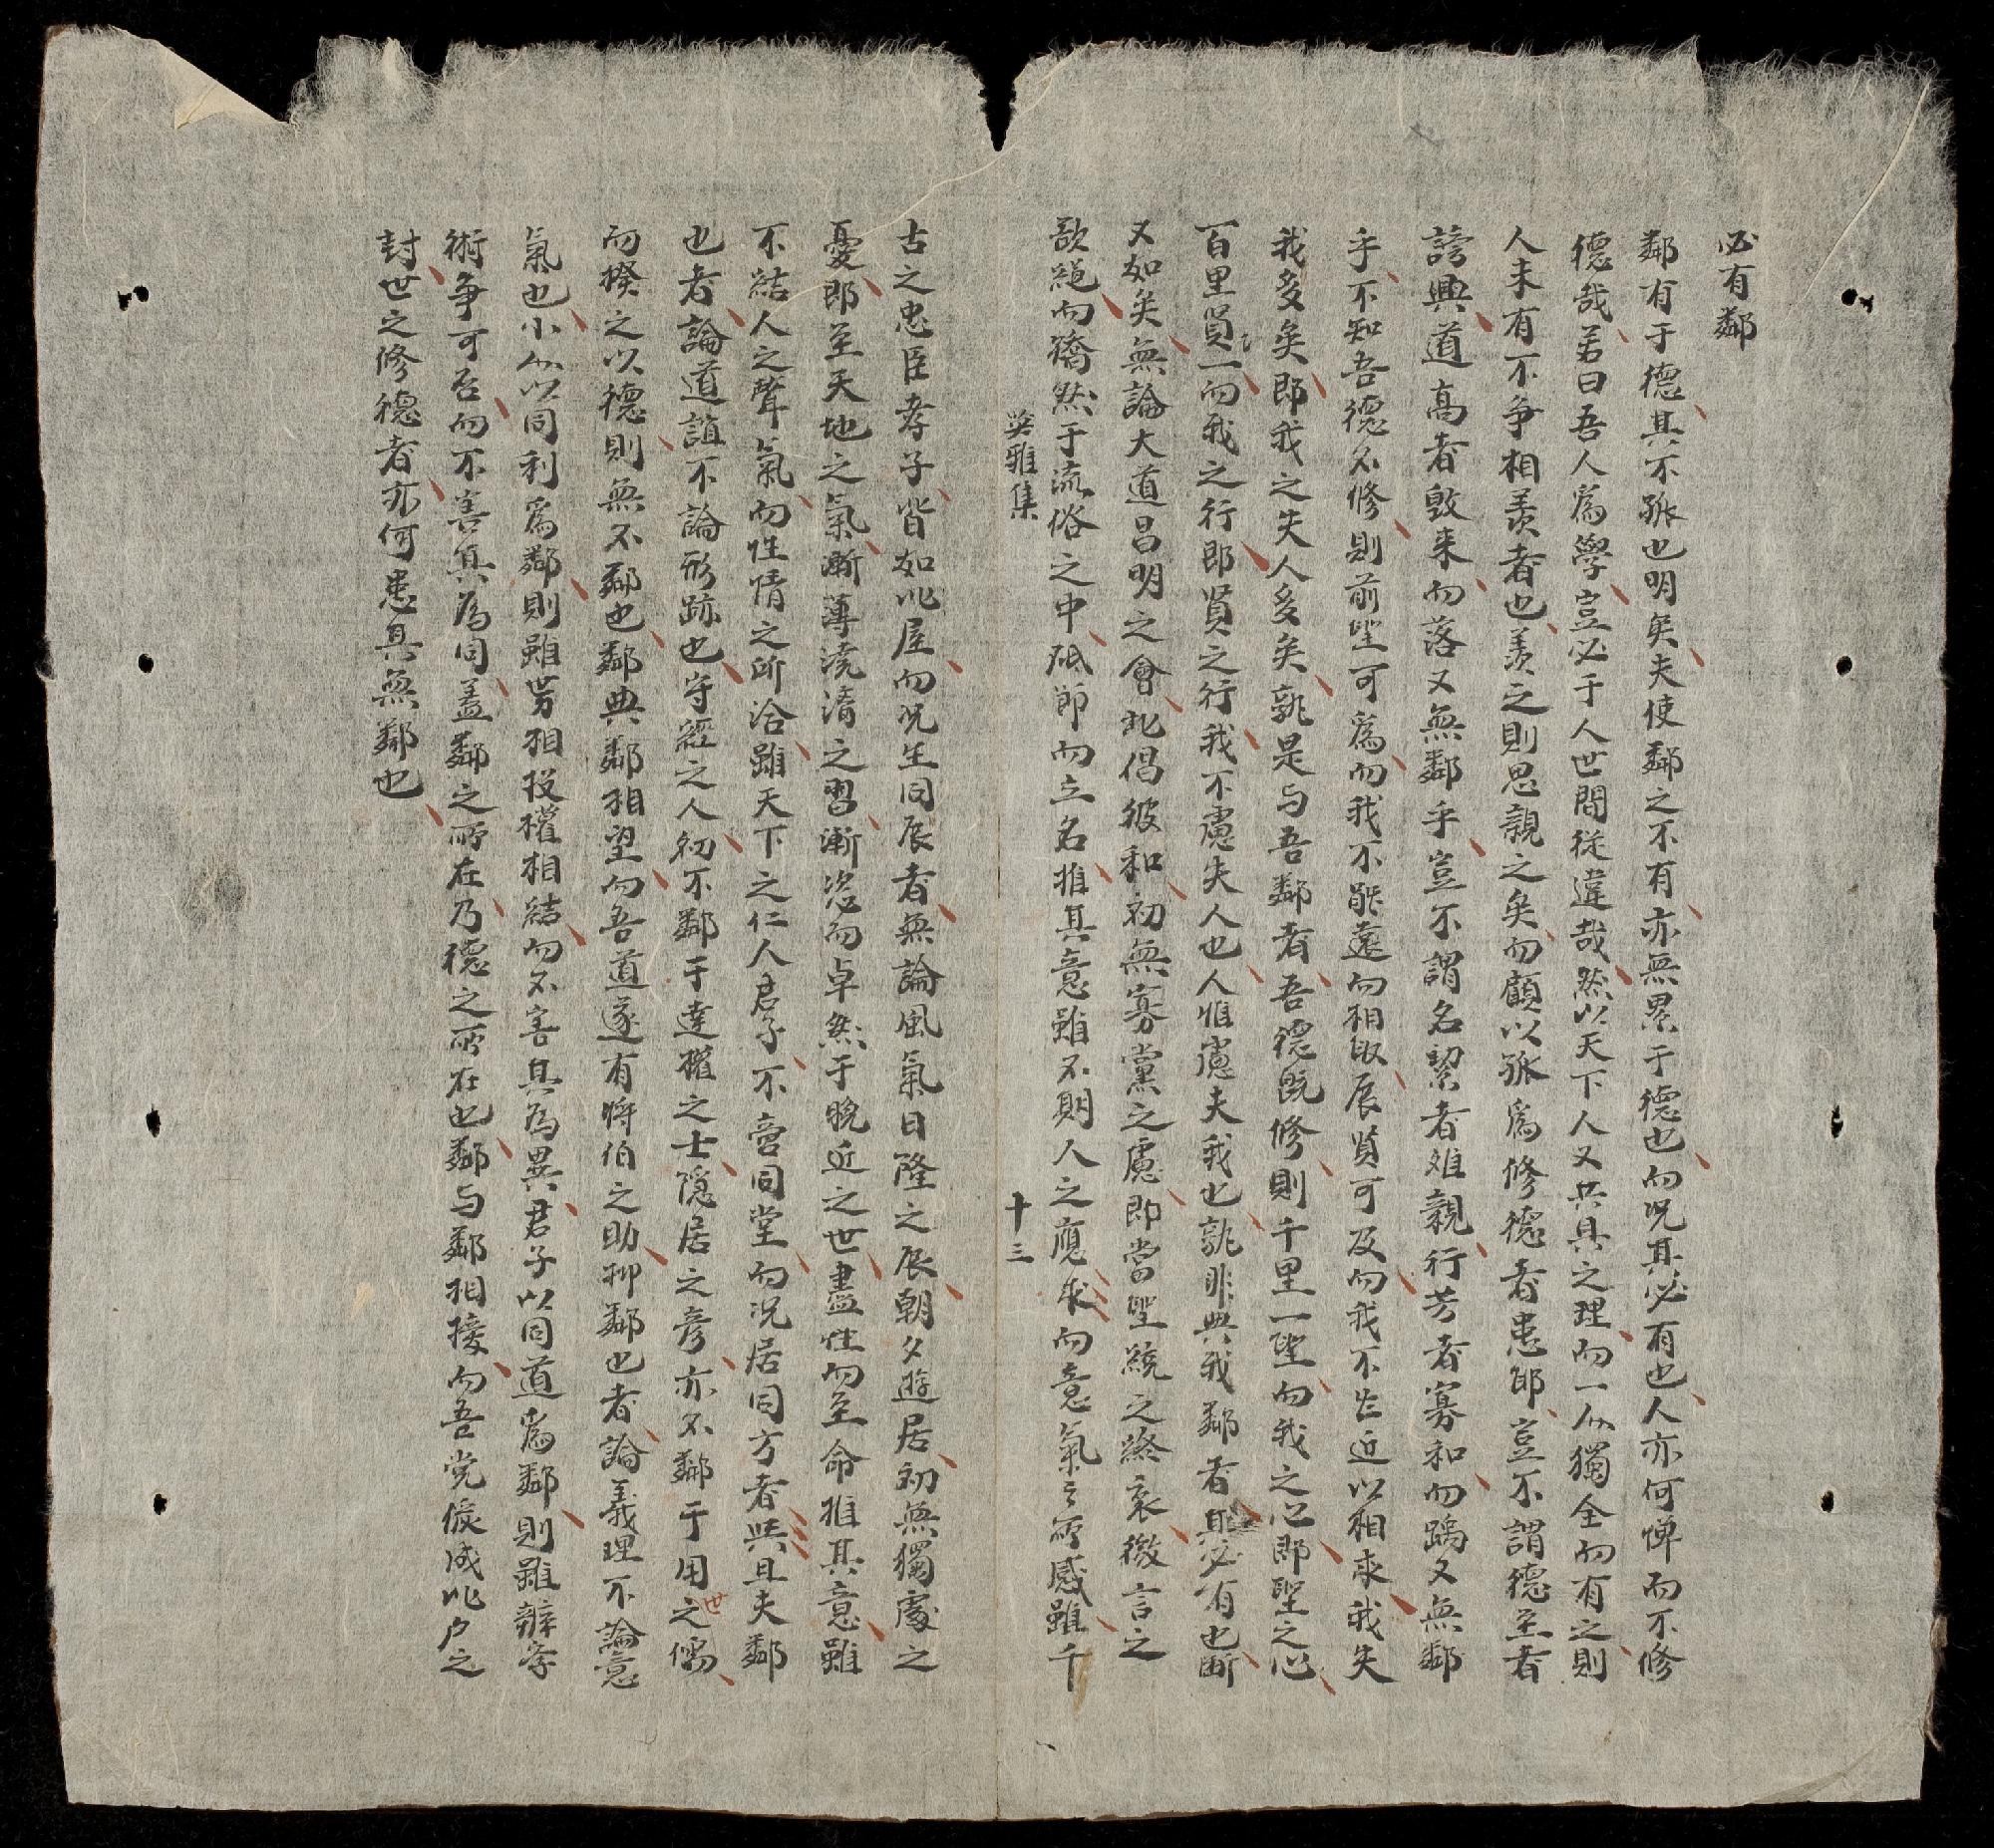 必有鄰
鄰有于德其不孤也明矣夫使鄰之不有亦無累于德也而况其必有也人亦何憚而不修
德哉若曰吾人為學豈必于人世間從違哉然以天下人又共具之理而一人獨全而有之則
人未有不爭相羨者也羨之則思親之矣而顧以孤為修德者患耶豈不謂德至者
謗興道高者毀来而落又無鄰乎豈不謂名潔者难親行芳者寡和而踽又無鄰
乎不知吾德不修則前聖可為而我不能遠而相取后賢可及而我不能近以相求我失
我多矣即我之失人多矣孰是与吾鄰者吾德既修則千里一聖而我之心即聖之心
百里賢一而我之行即賢之行我不慮失人也人惟慮失我也孰非與我鄰者其必有也断
又如矣無論大道昌明之會此倡彼和初無寡黨之慮即當聖統之將衰微言之
欲絕而矯然于流俗之中砥節而立名推其意雖不期人之應求而意氣之所感雖千
英雅集 十三
古之忠臣孝子皆如比屋而况生同辰者無論風氣日隆之辰朝夕遊居初無獨處之
憂即至天地之氣漸薄澆漓之習漸滋而卓然于晚近之世盡性而至命推其意雖
不結人之聲氣而性情之所洽雖天下之仁人君子不啻同堂而况居同方者與且夫鄰
也者論道誼不論形跡也守經之人初不鄰于達權之士隱居之彦亦不鄰于用世之儒
而揆之以德則無不鄰也鄰與鄰相望而吾道遂有將伯之助抑鄰也者論義理不論意
氣也小人以同利為鄰則雖勢相投權相結而不害其為異君子以同道為鄰則雖辨學
術爭可否而不害其為同蓋鄰之所在乃德之所在也鄰与鄰相接而吾党儼成比户之
封世之修德者亦何患其無鄰也